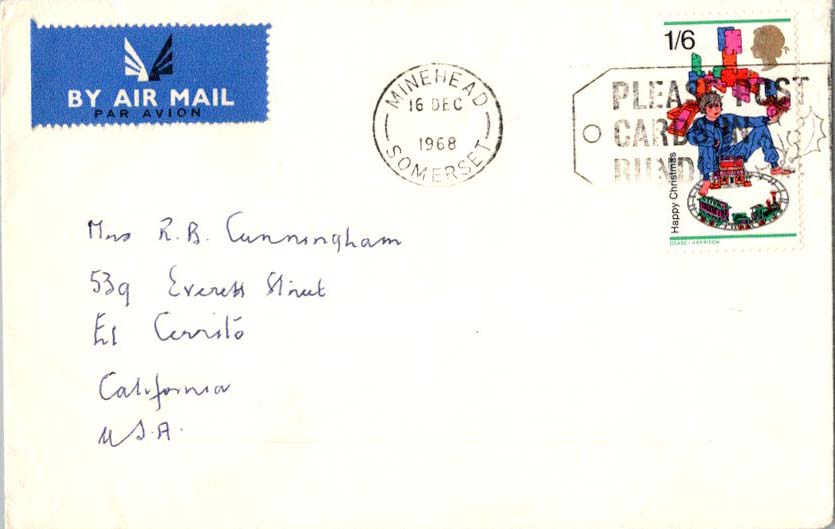 BY AIR MAIL
PAR AVION
MINEHEAD
16 DEC
1968
SOMERSET
1/6
PLEASE POST
CARD
BUND
Happy Christmas
HARRISON
Mrs R.B. Cunningham
539 Everett Street
El Cerrito
California
U.S.A.